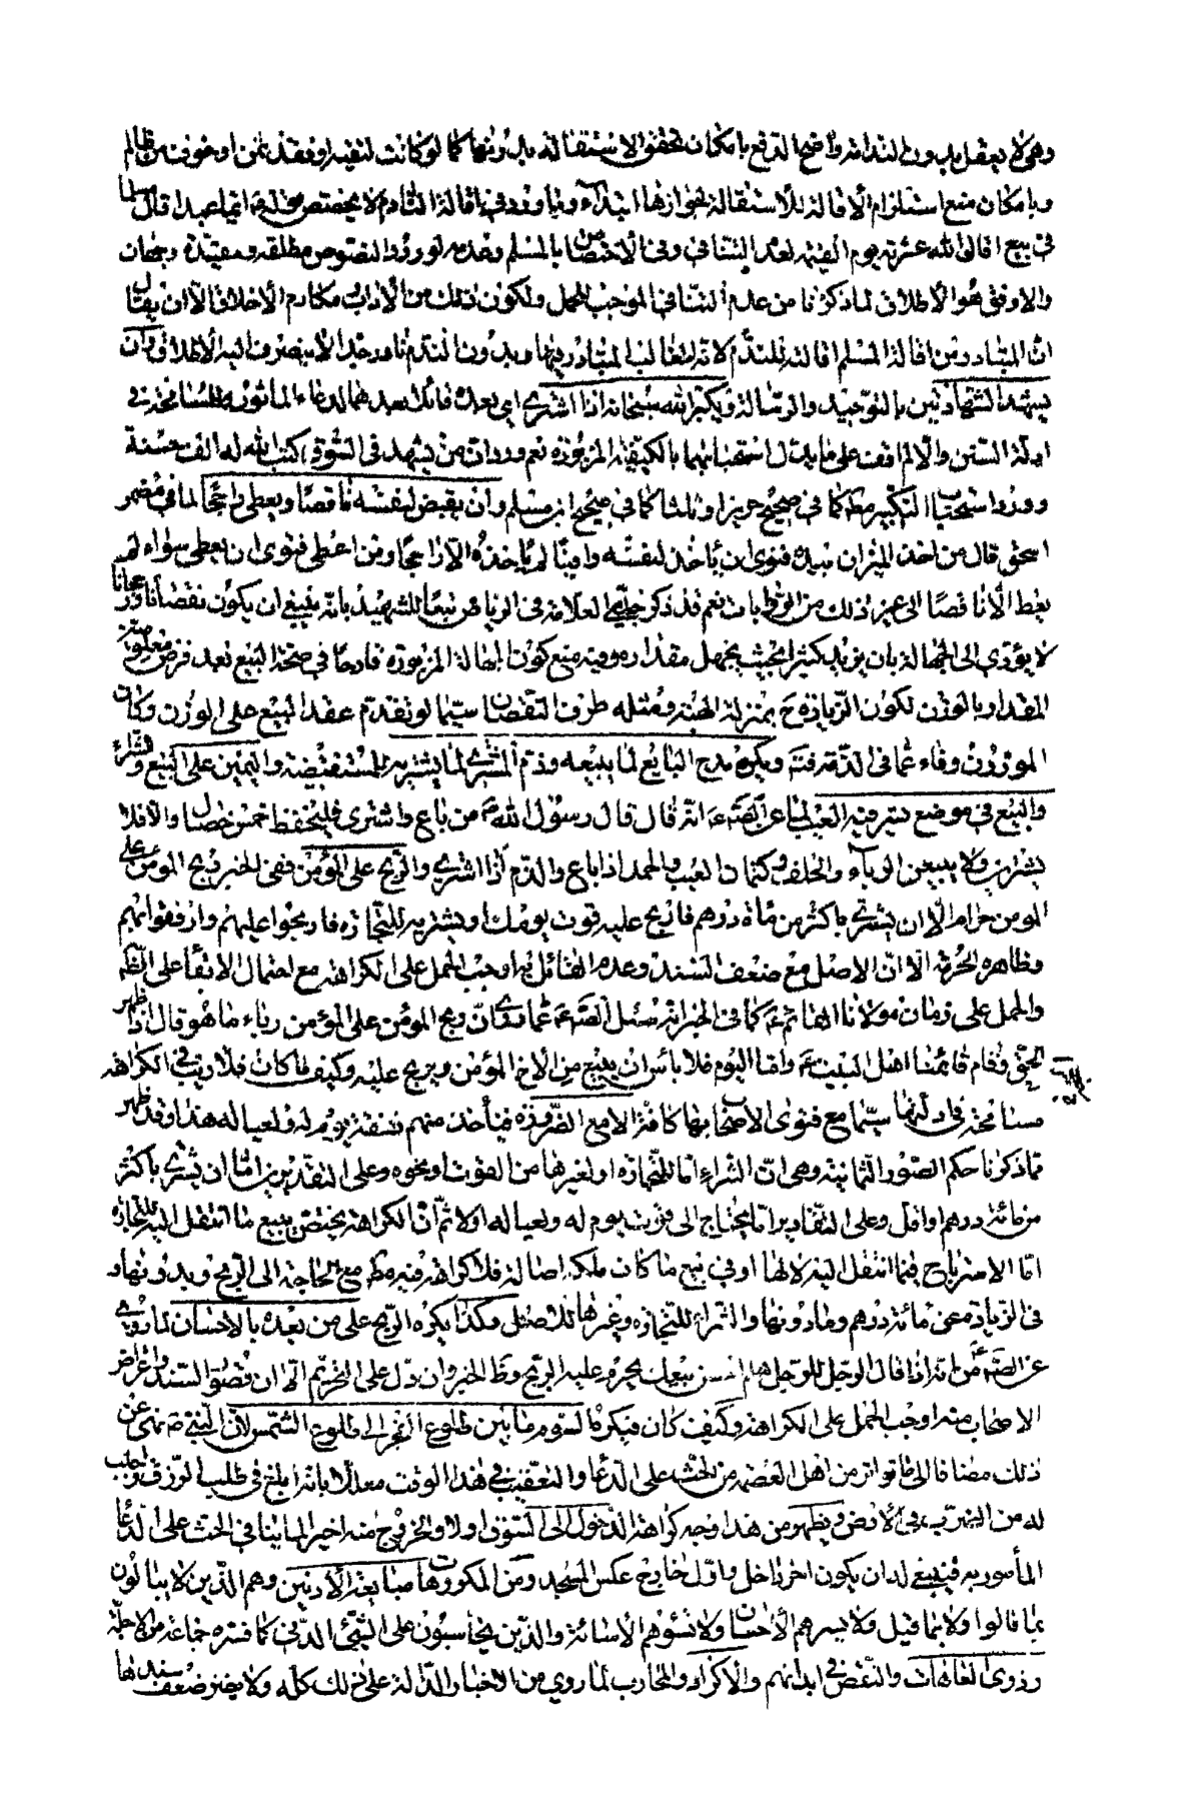 وهي لا يعقل بدون الندامة واضح الدفع بامكان تحقق الاستقالة بدونها كما لو كانت لتقية او فقد ثمن او خوف من ظالم
وبامكان منع استلزام الاقالة للاستقالة لجوازها ابتداء وما ورد في اقالة النادم لا يختص ايما عبد اقال مسلما
في بيع اقال الله عثرته يوم القيمة لعدم التنافي وفي الاختصاص بالمسلم وعدمه لورود النصوص مطلقة ومقيدة وجهان
والاوفق هو الاطلاق لما ذكرنا من عدم التنافي الموجب للحمل ولكون ذلك من الاداب ومكارم الاخلاق الا ان يقال
ان المتبادر من اقالة المسلم اقالته للندم لانه الغالب المتبادر منها وبدون الندم نادر جدا لا ينصرف اليه الاطلاق وان
يشهد الشهادتين بالتوحيد والرسالة ويكبر الله سبحانه اذا اشترى اي بعده قائلا بعدهما الدعاء الماثور للمسامحة في
ادلة السنن والا لم اقف على ما يدل استحبابهما بالكيفية المزبورة نعم ورد ان من يشهد في السوق كتب الله له الف حسنة
وورد استحباب التكبير كما في صحيح حريز او ثلثا كما في صحيح ابن مسلم وان يقبض لنفسه ناقصا ويعطى راجحا لما في مضمر
اسحق قال من اخذ الميزان بيده فنوى ان ياخذ لنفسه وافيا لم ياخذه الا راجحا ومن اعطى فنوى ان يعطى سواء لم
يعط الا ناقصا الى غير ذلك من نعم قد ذكر العلامة في الرياض تبعا للشهيد بانه ينبغي ان يكون نقصانا ورجحانا
لا يؤدي الى الجهالة بان يزيد كثيرا بحيث يجهل مقداره وفيه منع كون الجهالة المزبورة قادحا في صحة البيع بعد فرض معلومية
المقدار بالوزن لكون الزيادة ح بمنزلة الهبة ومثله طرف النقصان سيما لو تقدم عقد البيع على الوزن وكان
الموزون وفاء عما في الذمة ويكره مدح البايع لما يبيعه وذم المشتري لما يشتريه للمستفيضة واليمين على البيع والشراء
والبيع في موضع يستر فيه العيب انه قال قال رسول الله من باع واشترى فليحفظ خمس خصال والا فلا
يشترين ولا يبيعن الرباء والحلف وكتمان العيب والحمد اذا باع والذم اذا اشترى والربح على المؤمن ففي الخبر ربح المؤمن على
المومن حرام الا ان يشترى باكثر من مأة درهم فاربح عليه قوت يومك او يشتريه للتجارة فاربحوا عليهم وارفقوا بهم
وظاهره الحرمة الا ان الاصل مع ضعف السند وعدم القائل به اوجب الحمل على الكراهة مع احتمال الابقاء على الظهر
والحمل على زمان مولانا القائم كما في الخبر انه سئل عما روى ان ربح المؤمن على المؤمن رباء ما هو قال ذا ظهر
الحق وقام قائمنا اهل البيت واما اليوم فلا بأس ان يبيع من الاخ المؤمن ويربح عليه وكيف ما كان فلا ريب في الكراهة
مسامحة في ادلتها سيما مع فتوى الاصحاب بها كافة الا مع الضرورة فيأخذ منهم نفقة يوم له ولعياله هذا وقد ظهر
مما ذكرنا حكم الصور الثمانية وهي ان الشراء اما للتجارة او لغيرها من القوت ونحوه وعلى التقديرين اما ان يشترى باكثر
من مائة درهم او اقل وعلى التقادير اما يحتاج الى قوت يوم له ولعياله او لا ثم ان الكراهة يختص ببيع ما انتقل اليه للتجارة
اما الاسترباح فيما انتقل اليه لا لها او في بيع ما كان ملكه اصالة فلا كراهة فيه مع الحاجة الى الربح وبدونها و
في الزيادة عن مائة درهم وما دونها والشراء للتجارة وغيرها للاصل وكذا يكره الربح على من يعده بالاحسان لما روى
عن انه اذا قال الرجل للرجل هلم احسن بيعك يحرم عليه الربح وظ الخبر وان دل على التحريم الا ان قصور السند واعراض
الاصحاب منه اوجب الحمل على الكراهة وكيف كان فيكره السوم ما بين طلوع الفجر الى طلوع الشمس لان النبي نهى عن
ذلك مضافا الى ما تواتر من اهل العصمة من الحث على الدعا والتعقيب في هذا الوقت معللا بانه ابلغ في طلب الرزق واجلب
له من الضرب في الارض ويظهر من هذا وجه كراهة الدخول الى السوق اولا والخروج منه اخيرا لما ينافي الحث على الدعا
المأمور به فينبغي له ان يكون اخر داخل واول خارج عكس المسجد ومن المكروهات مبايعة الادنين وهم الذين لا يبالون
بما قالوا ولا بما قيل ولا يسرهم الاحسان ولا تسؤهم الاسائة والذين يحاسبون على الشيء الدني كما فسره جماعة من الاجلة
وذوى العاهات والنقص في ابدانهم والاكراد والمحارب لما روي من الاخبار الدالة على ذلك كله ولا يضر ضعف سندها